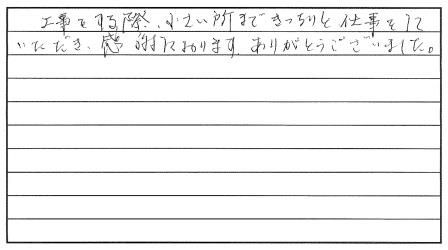 工事をする際、小さい所まできっちりと仕事をして
いただき、感謝しております。ありがとうございました。